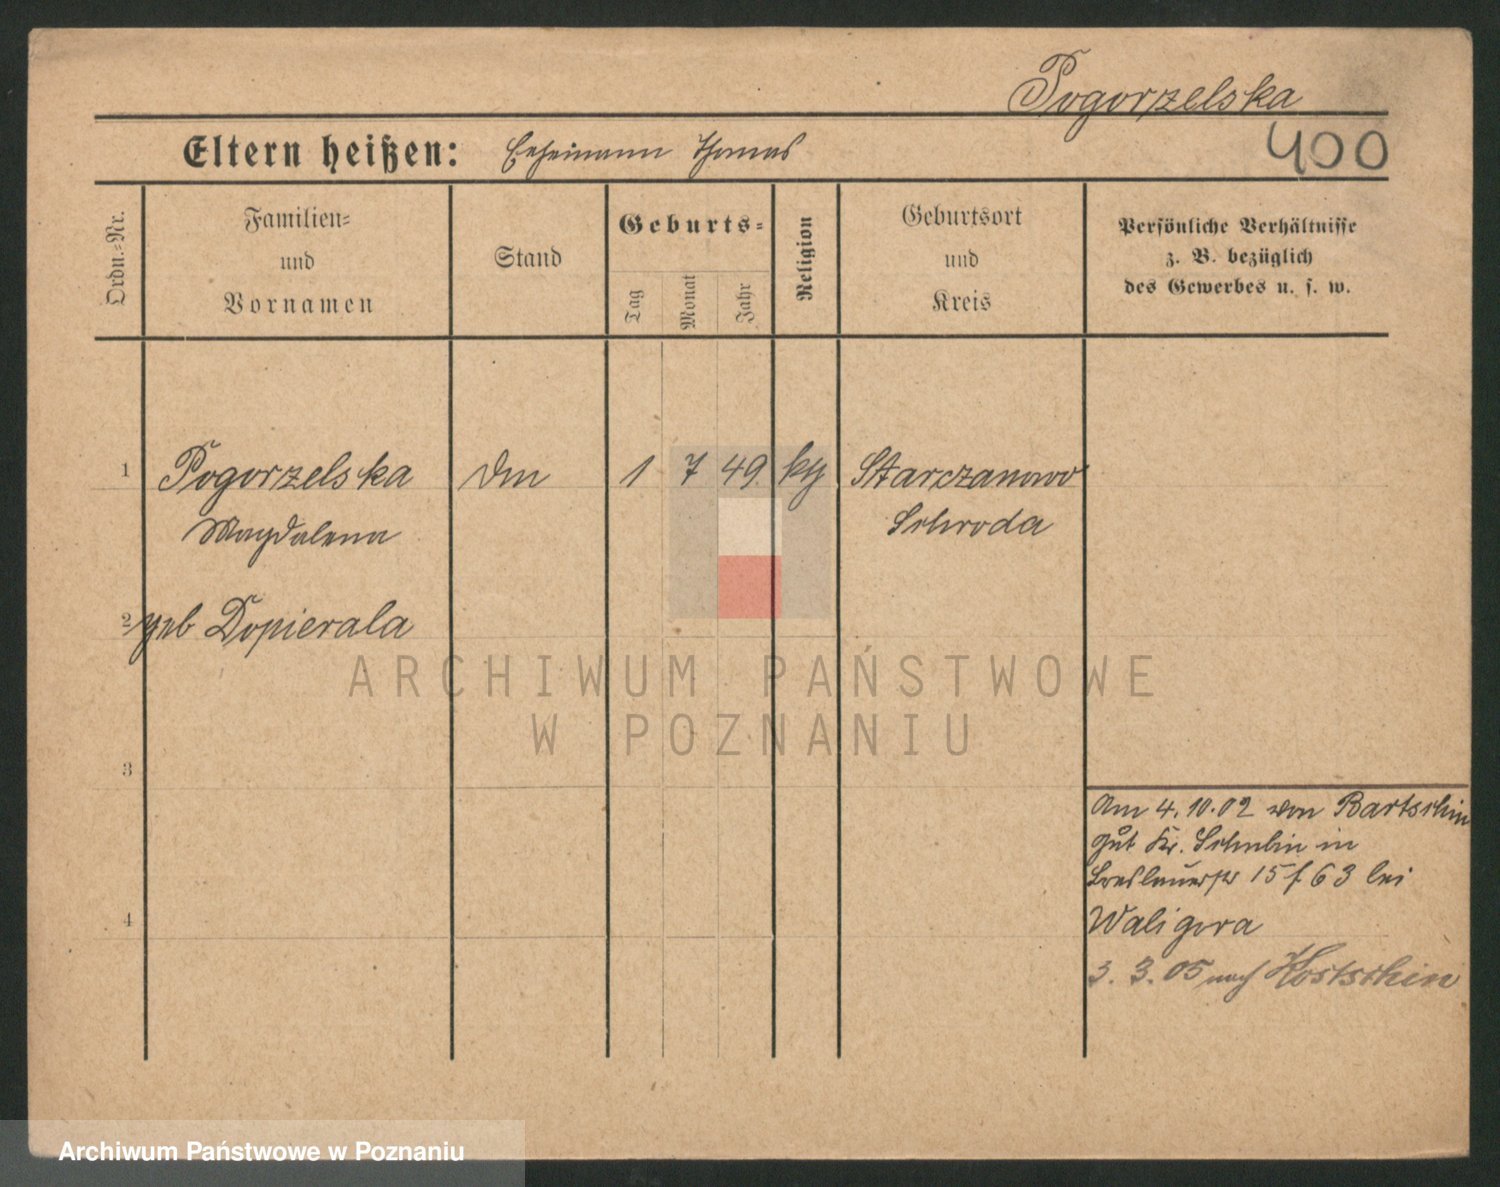 Pogorzelska
400
Eltern heißen: Eheimann Thomas
Ordn.-Nr.
Familien-
und
Vornamen
Stand
Geburts-
Tag
Monat
Jahr
Religion
Geburtsort
und
Kreis
Persönliche Verhältnisse
z. B. bezüglich
des Gewerbes u. s. w.
1 Pogorzelska 1 7 49 kg Starczanowo
Magdalena Schroda
2 geb Dopierala
3
4
Am 4.10.02 von Bartschin
gut Kr. Schubin in
Breslauerstr 15 f 63 bei
Waligora
3. 3. 05 nach Kostschin
ARCHIWUM PAŃSTWOWE
W POZNANIU
Archiwum Państwowe w Poznaniu